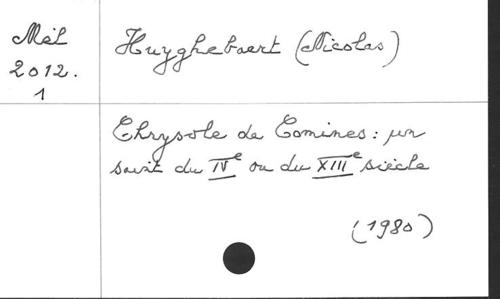 Mél
2012.
1
Huyghebaert (Nicolas)
Chrysole de Comines : un
saint du IVe ou du XIIIe siècle
(1980)